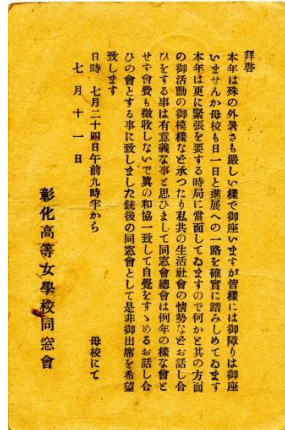 拜啓
本年は殊の外暑さも嚴しい樣で御座いますが皆樣には御障りは御座
いませんか母校も日一日と進展への一路を確實に踏みしめてゐます
本年は更に緊張を要する時局に當面してゐますので何かと其の方面
の御活動の御模樣など承つたり私共の生活社會の情勢などお話し合
ひをする事は有意義な事と思ひまして同窓會總會は例年の樣な會と
せず會費も徵收しないで眞の和協一致して自覺をすゝめるお話し合
ひの會とする事に致しました銃後の同窓會として是非御出席を希望
致します
日時 七月二十四日午前九時半から
母校にて
七月十一日
彰化高等女學校同窓會